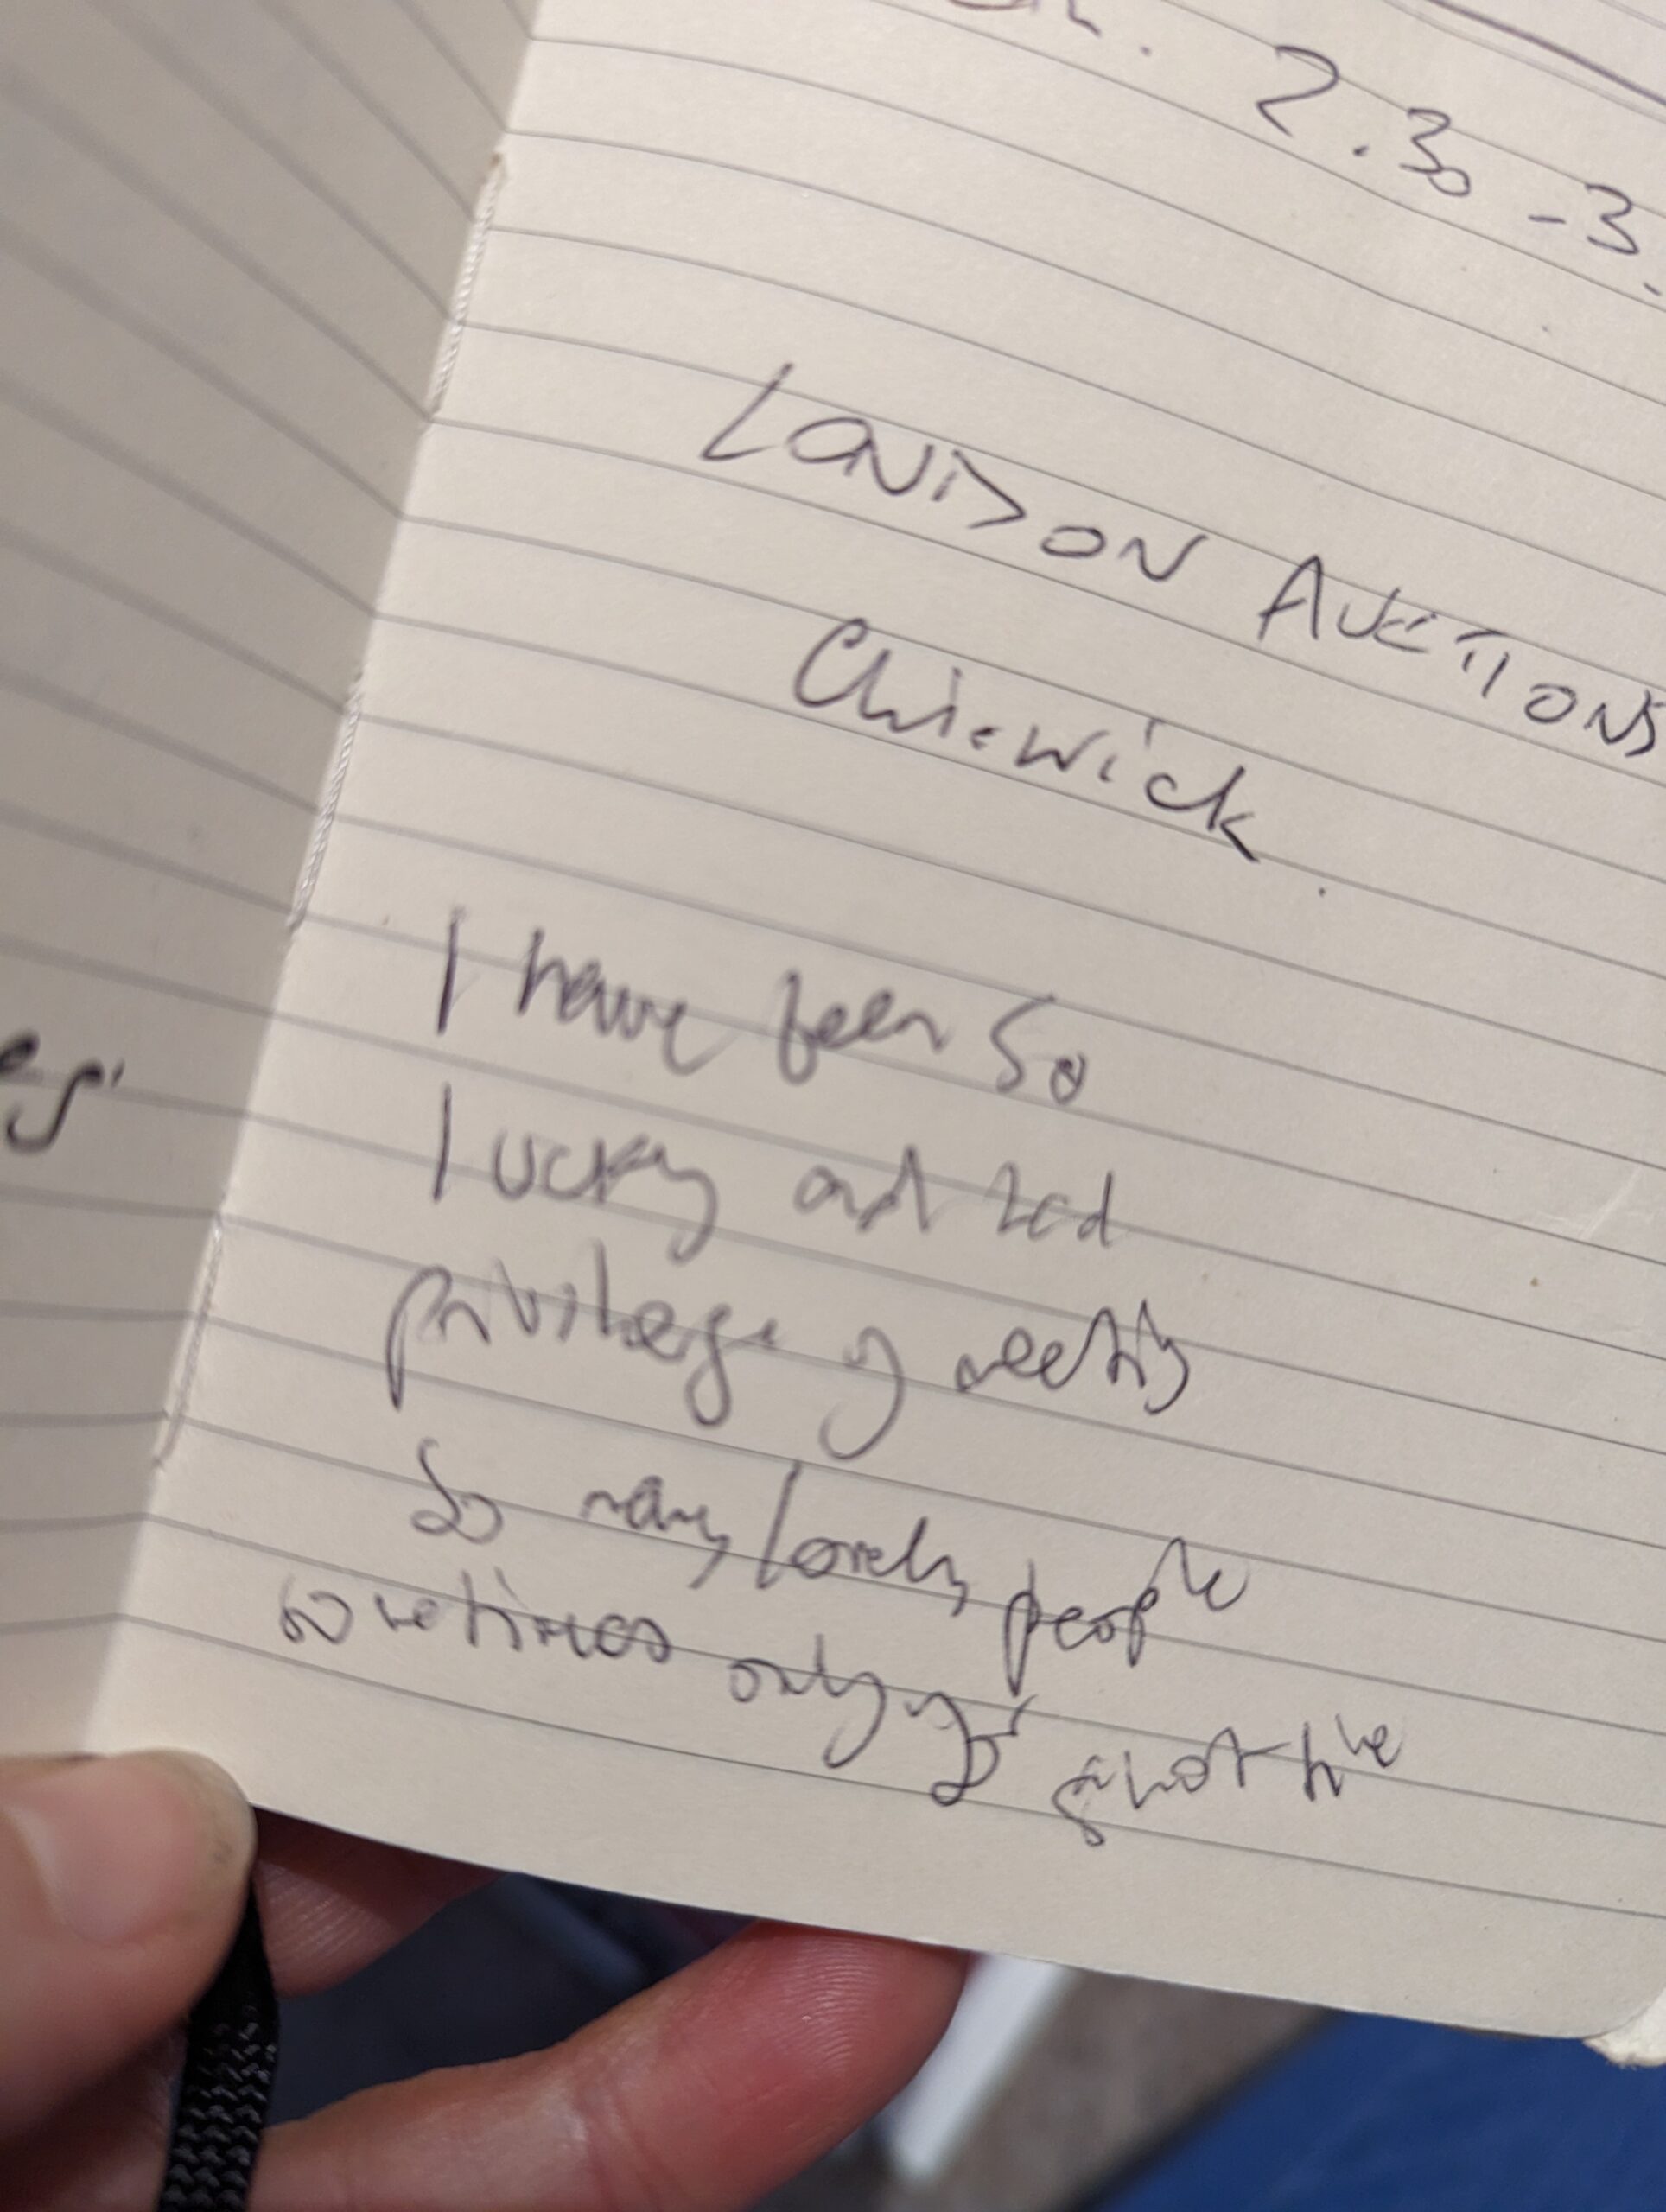 2.30 - 3.
LONDON AUCTIONS
Chiswick.
I have been so
lucky and had
privilege of meeting
So many lovely people
sometimes only for short time